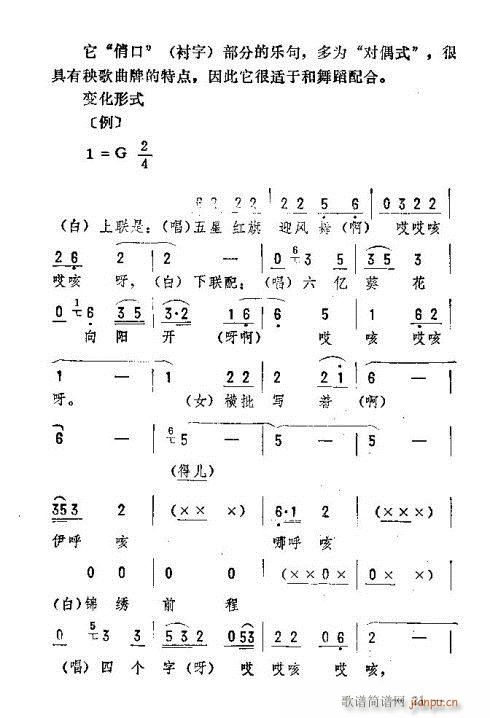 它“俏口”（衬字）部分的乐句，多为“对偶式”，很
具有秧歌曲牌的特点，因此它很适于和舞蹈配合。
变化形式
〔例〕
1 = G 2/4
6 2 2 2 | 2 2 5 6 | 0 3 2 2 |
（白）上联是：（唱）五星 红旗 迎风 舞（啊） 哎哎咳
2 6 2 | 2 — | 0 6 3 5 | 3 5 3 |
哎咳 呀，（白）下联配：（唱）六 亿 葵 花
0 1 6 3 5 | 3·2 1 6 | 6 5 | 1 6 2 |
向 阳 开 （呀啊） 哎 咳 哎咳
1 — | 1 2 2 | 2 2 1 | 6 — |
呀。 （女）横批 写 着 （啊）
6 — | 6 5 — | 5 — | 5 — |
（得儿）
3 5 3 2 | （× × ×） | 6·1 2 | （× × ×） |
伊呼 咳 哪呼 咳
0 0 | 0 0 | （× × 0 × | × 0 ×） |
（白）锦 绣 前 程
0 5 3 3 | 3 5 3 2 0 5 3 | 2 2 0 6 | 2 — |
（唱）四 个 字（呀） 哎 哎咳 哎 咳，
歌谱简谱网 21
jianpu.cn